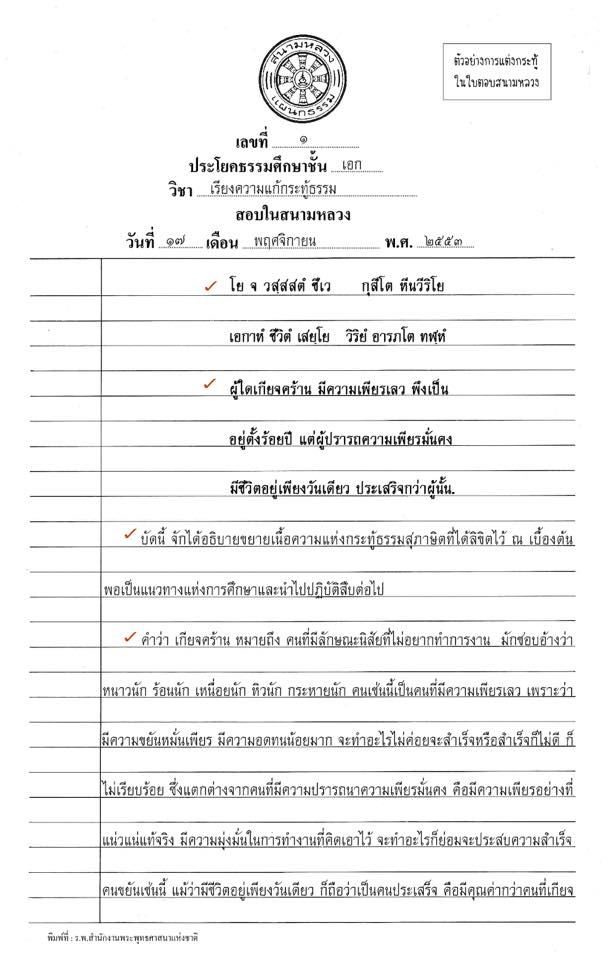 สนามหลวง
แผนกธรรม
ตัวอย่างการแต่งกระทู้
ในใบตอบสนามหลวง
เลขที่ ๑
ประโยคธรรมศึกษาชั้น เอก
วิชา เรียงความแก้กระทู้ธรรม
สอบในสนามหลวง
วันที่ ๑๗ เดือน พฤศจิกายน พ.ศ. ๒๕๕๓
โย จ วสฺสสตํ ชีเว กุสีโต หีนวีริโย
เอกาหํ ชีวิตํ เสยฺโย วิริยํ อารภโต ทฬฺหํ
ผู้ใดเกียจคร้าน มีความเพียรเลว พึงเป็น
อยู่ตั้งร้อยปี แต่ผู้ปรารถความเพียรมั่นคง
มีชีวิตอยู่เพียงวันเดียว ประเสริจกว่าผู้นั้น.
บัดนี้ จักได้อธิบายขยายเนื้อความแห่งกระทู้ธรรมสุภาษิตที่ได้ลิขิตไว้ ณ เบื้องต้น
พอเป็นแนวทางแห่งการศึกษาและนำไปปฏิบัติสืบต่อไป
คำว่า เกียจคร้าน หมายถึง คนที่มีลักษณะนิสัยที่ไม่อยากทำการงาน มักชอบอ้างว่า
หนาวนัก ร้อนนัก เหนื่อยนัก หิวนัก กระหายนัก คนเช่นนี้เป็นคนที่มีความเพียรเลว เพราะว่า
มีความขยันหมั่นเพียร มีความอดทนน้อยมาก จะทำอะไรไม่ค่อยจะสำเร็จหรือสำเร็จก็ไม่ดี ก็
ไม่เรียบร้อย ซึ่งแตกต่างจากคนที่มีความปรารถนาความเพียรมั่นคง คือมีความเพียรอย่างที่
แน่วแน่แท้จริง มีความมุ่งมั่นในการทำงานที่คิดเอาไว้ จะทำอะไรก็ย่อมจะประสบความสำเร็จ
คนขยันเช่นนี้ แม้ว่ามีชีวิตอยู่เพียงวันเดียว ก็ถือว่าเป็นคนประเสร็จ คือมีคุณค่ากว่าคนที่เกียจ
พิมพ์ที่ : ร.พ.สำนักงานพระพุทธศาสนาแห่งชาติ